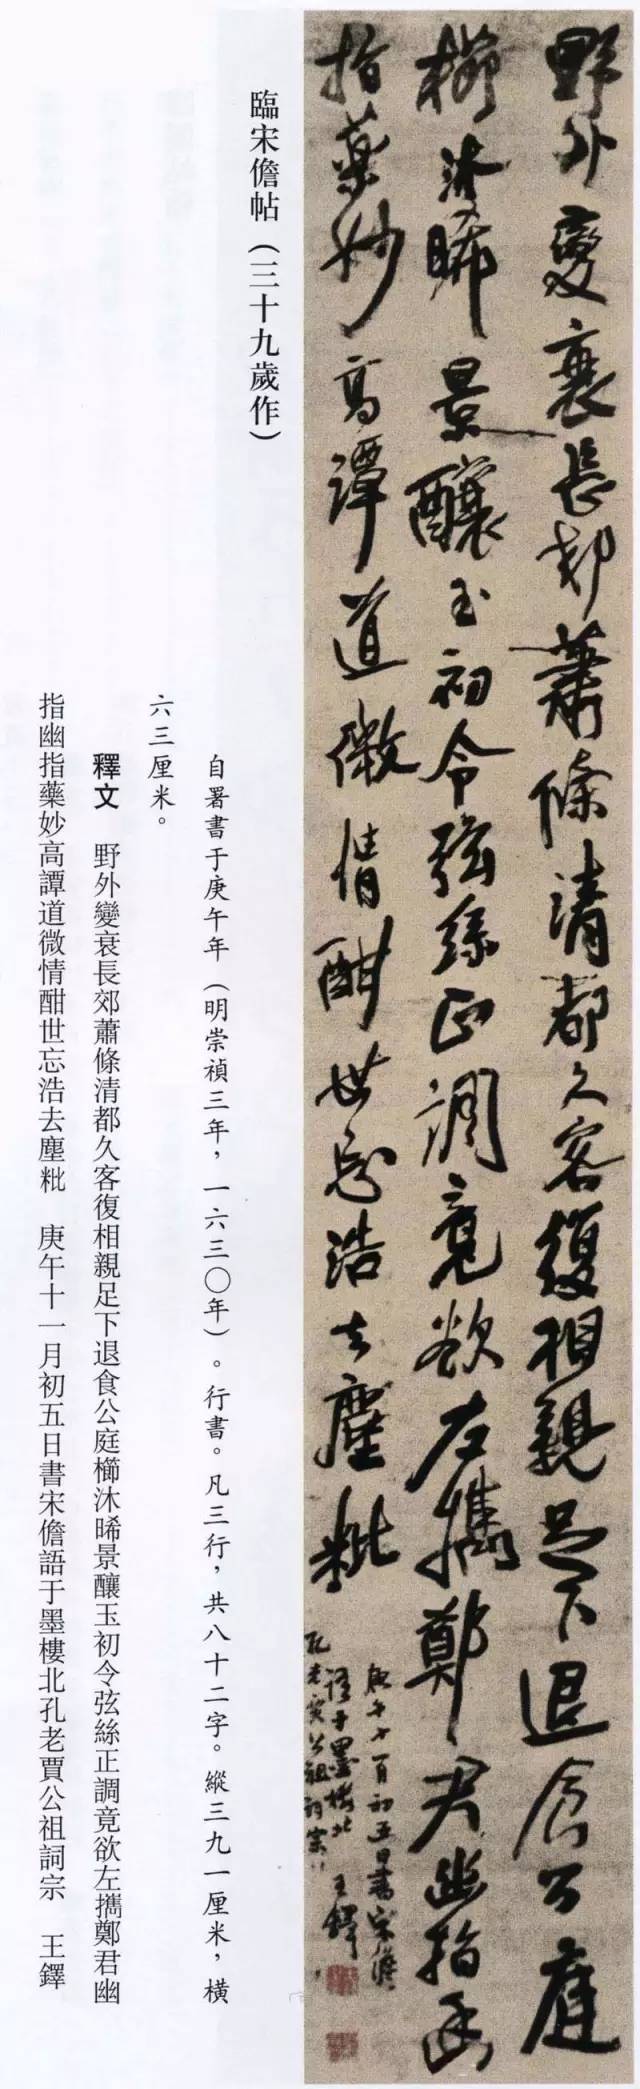 野外變衰長郊蕭條清都久客復相親足下退食公庭
櫛沐晞景釀玉初令弦絲正調竟欲左攜鄭君幽指幽
指藥妙高譚道微情酣世忘浩去塵粃
庚午十一月初五日書宋儋
語于墨樓北 王鐸
孔老賈公祖詞宗
臨宋儋帖（三十九歲作）
自署書于庚午年（明崇禎三年，一六三〇年）。行書。凡三行，共八十二字。縱三九一厘米，橫
六三厘米。
釋文 野外變衰長郊蕭條清都久客復相親足下退食公庭櫛沐晞景釀玉初令弦絲正調竟欲左攜鄭君幽
指幽指藥妙高譚道微情酣世忘浩去塵粃 庚午十一月初五日書宋儋語于墨樓北孔老賈公祖詞宗 王鐸